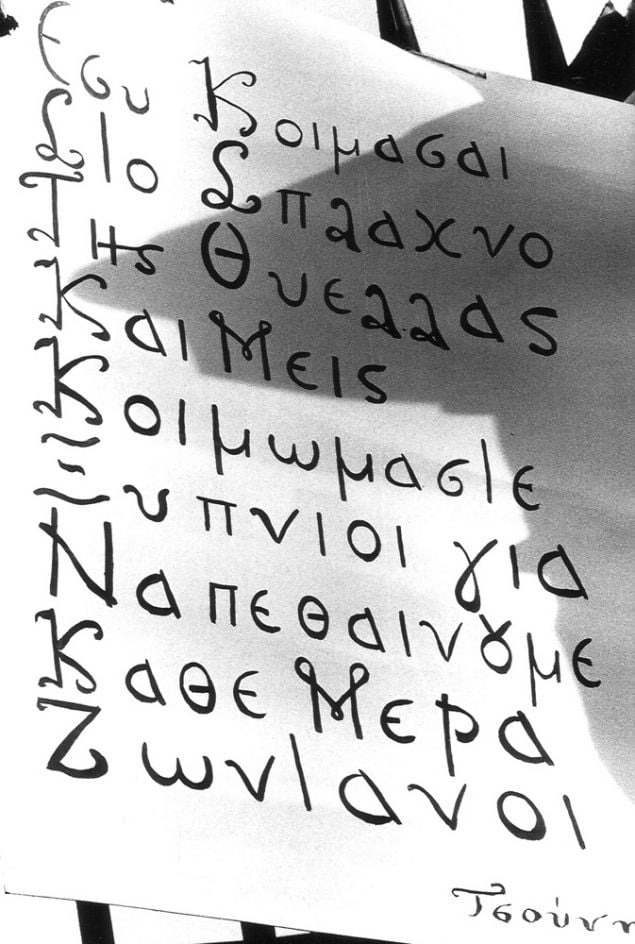 Εσυ Κοιμασαι
Στο Σπλαχνο
Της Θυελλας
Και Μεις
Κοιμωμαστε
Ξυπνιοι για
Να πεθαινȣμε
Καθε Μερα
Ζωντανοι